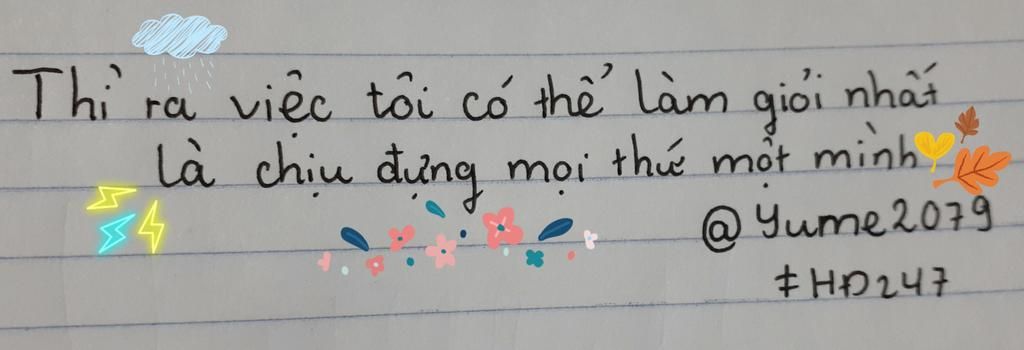 Thì ra việc tôi có thể làm giỏi nhất
là chịu đựng mọi thứ một mình
@Yume2079
#HĐ247